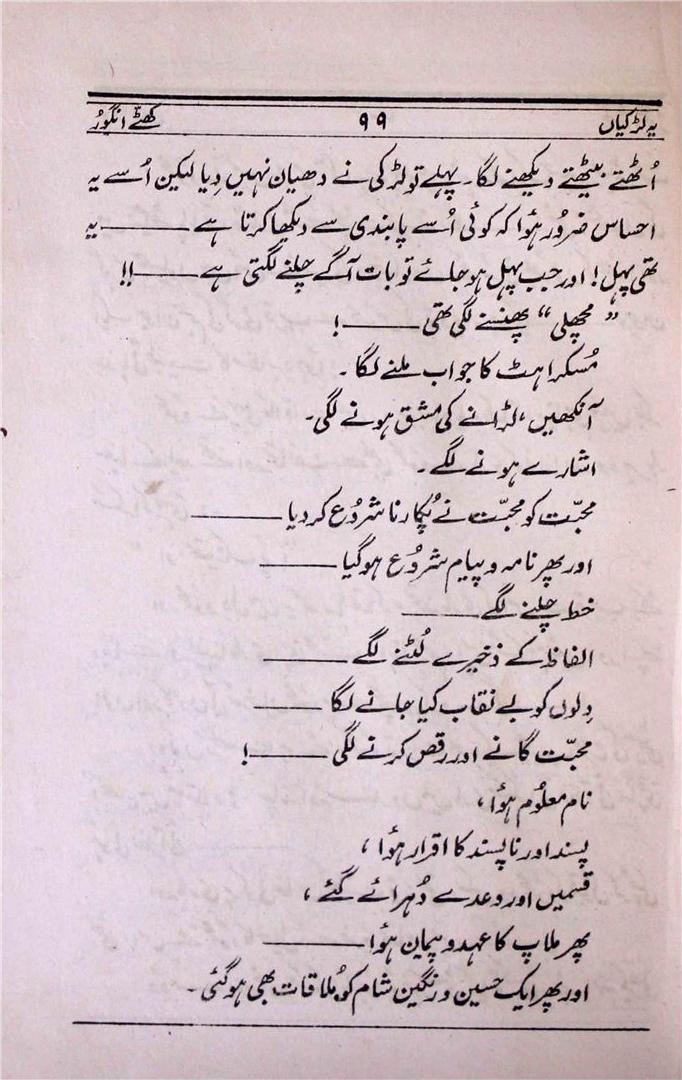 یہ لڑکیاں ۹۹ کھٹّے انگور
اُٹھتے بیٹھتے دیکھنے لگا۔ پہلے تو لڑکی نے دھیان نہیں دِیا لیکن اُسے یہ
احساس ضرور ہؤا کہ کوئی اُسے پابندی سے دیکھا کرتا ہے ــــــــ یہ
تھی پہل! اور جب پہل ہو جائے تو بات آگے چلنے لگتی ہے ــــــــ!!
”مچھلی“ پھنسنے لگی تھی ــــــــ!
مُسکراہٹ کا جواب ملنے لگا۔
آنکھیں، لڑانے کی مشق ہونے لگی۔
اشارے ہونے لگے۔
محبّت کو محبّت نے پُکارنا شروُع کر دیا ــــــــ
اور پھر نامہ و پیام شروُع ہو گیا ــــــــ
خط چلنے لگے ــــــــ
الفاظ کے ذخیرے لُٹنے لگے ــــــــ
دِلوں کو بے نقاب کیا جانے لگا ــــــــ
محبّت گانے اور رقص کرنے لگی ــــــــ!
نام معلوُم ہؤا،
پسند اور ناپسند کا اقرار ہؤا،
قسمیں اور وعدے دُہرائے گئے،
پھر ملاپ کا عہد و پیمان ہؤا ــــــــ
اور پھر ایک حسین و رنگین شام کو مُلاقات بھی ہو گئی۔